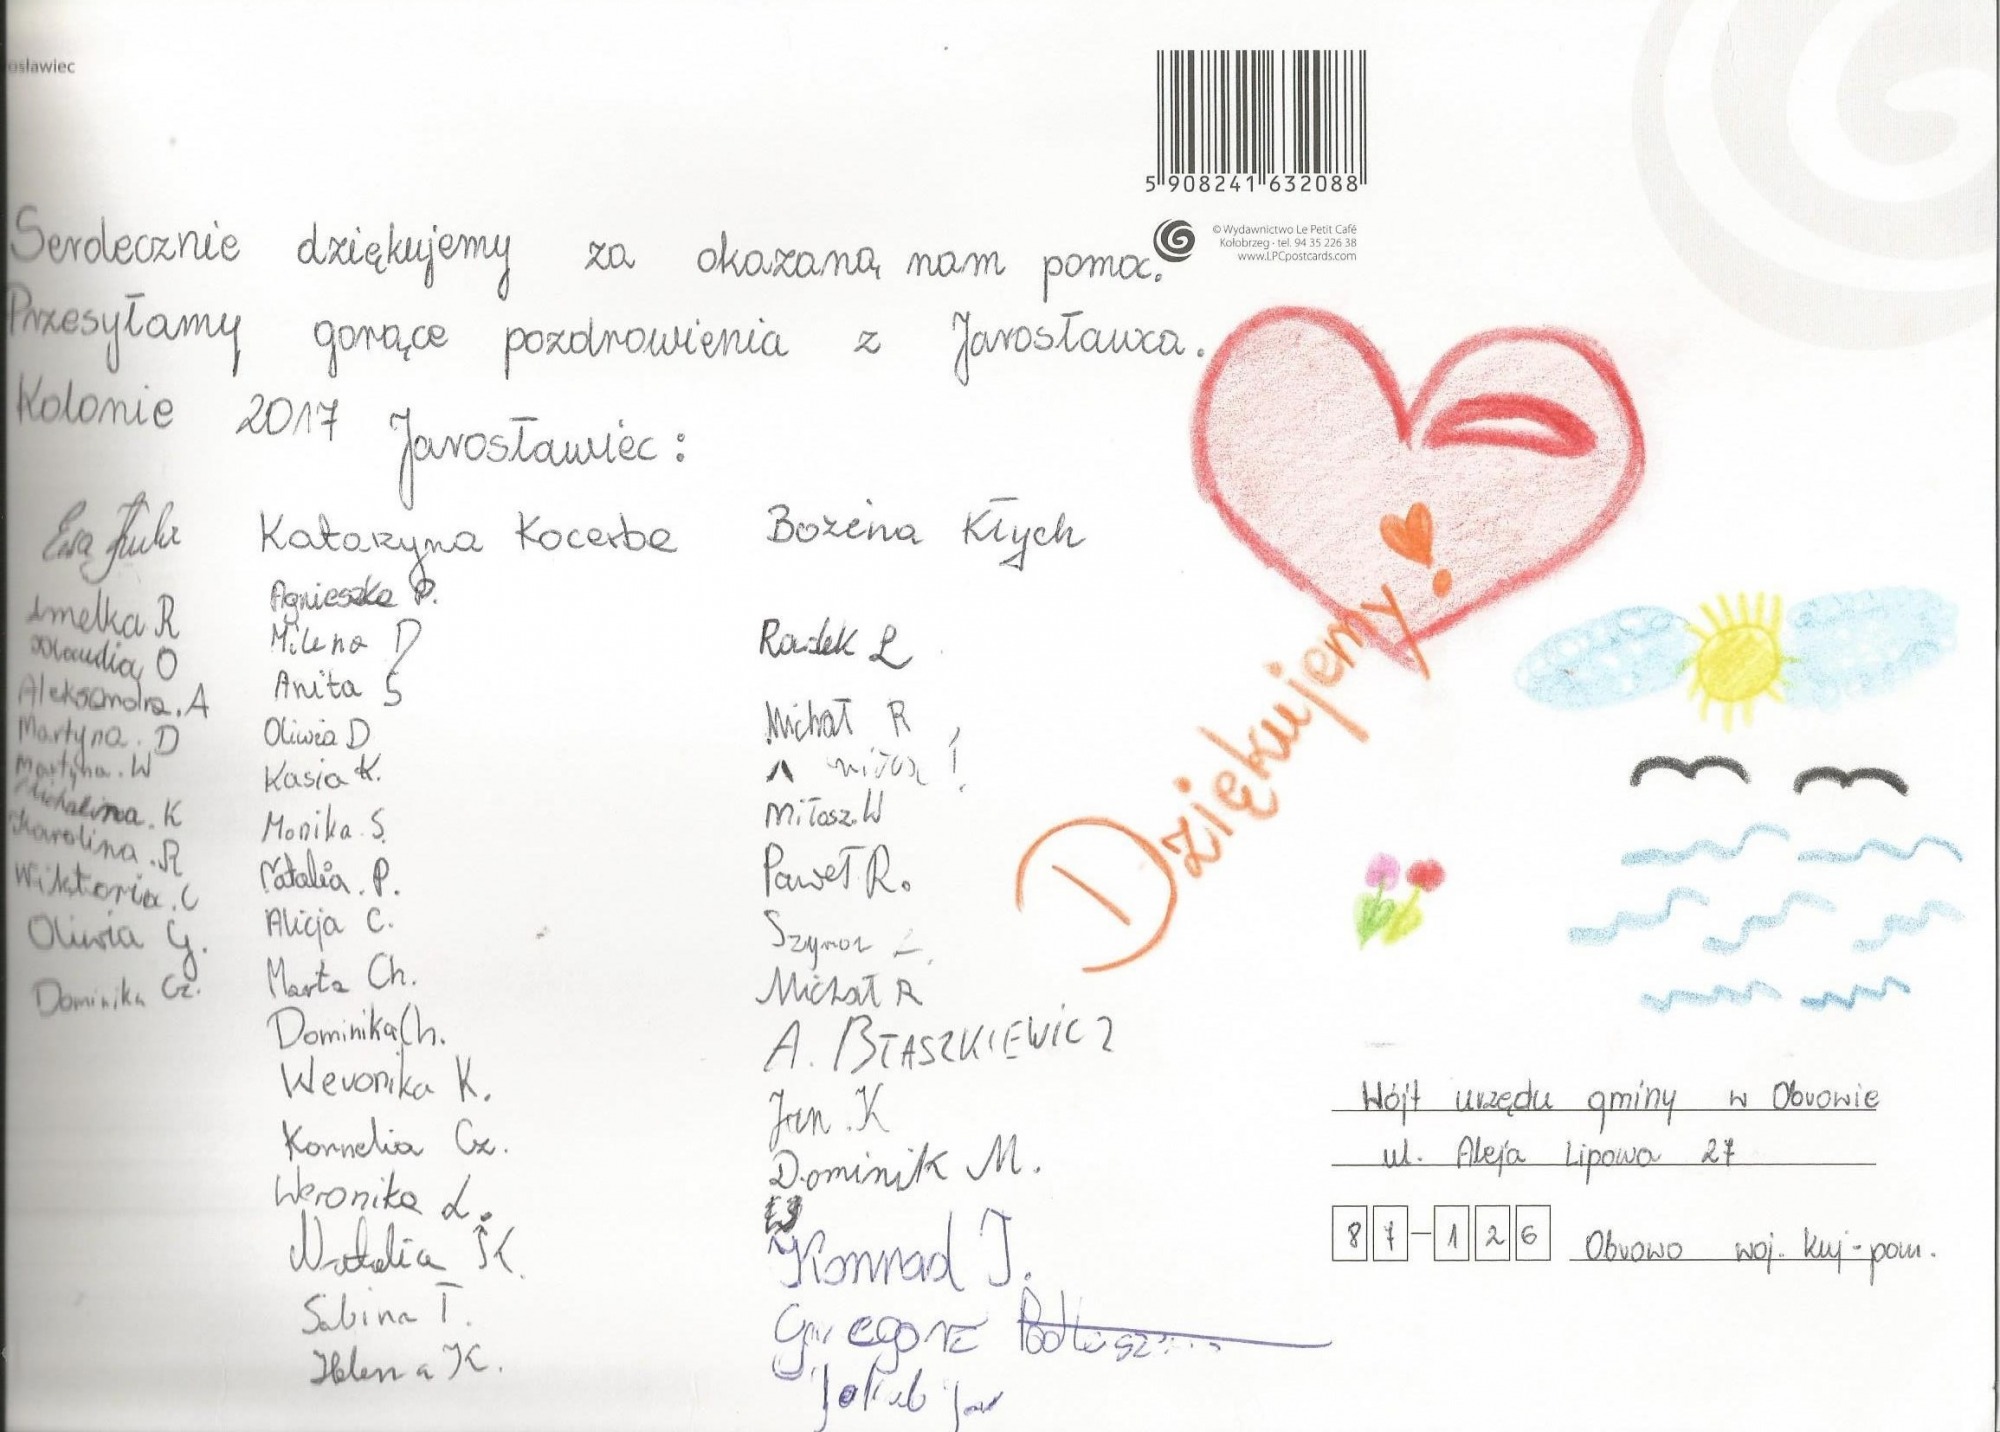 osławiec
5 908241 632088
© Wydawnictwo Le Petit Café
Kołobrzeg - tel. 94 35 226 38
www.LPCpostcards.com
Serdecznie dziękujemy za okazaną nam pomoc.
Przesyłamy gorące pozdrowienia z Jarosławca.
Kolonie 2017 Jarosławiec:
Ewa
Katarzyna Kocerba
Bożena Kłych
Amelka R
Klaudia O
Aleksandra. A
Martyna. D
Martyna. W
Michalina. K
Karolina. R
Wiktoria. C
Oliwia G.
Dominika Cz.
Agnieszka P.
Milena D
Anita S
Oliwia D
Kasia K.
Monika S.
Natalia. P.
Alicja C.
Marta Ch.
Dominika Ch.
Weronika K.
Kornelia Cz.
Weronika L.
Natalia K.
Sabina T.
Helena K.
Radek L
Michał R
Miłosz. W
Paweł R.
Szymon
Michał R
A. BŁASZKIEWICZ
Jan. K
Dominik M.
Konrad J.
Grzegorz
Jakub
Dziękujemy!
Wójt urzędu gminy w Obrowie
ul. Aleja Lipowa 27
87-126 Obrowo woj. kuj-pom.